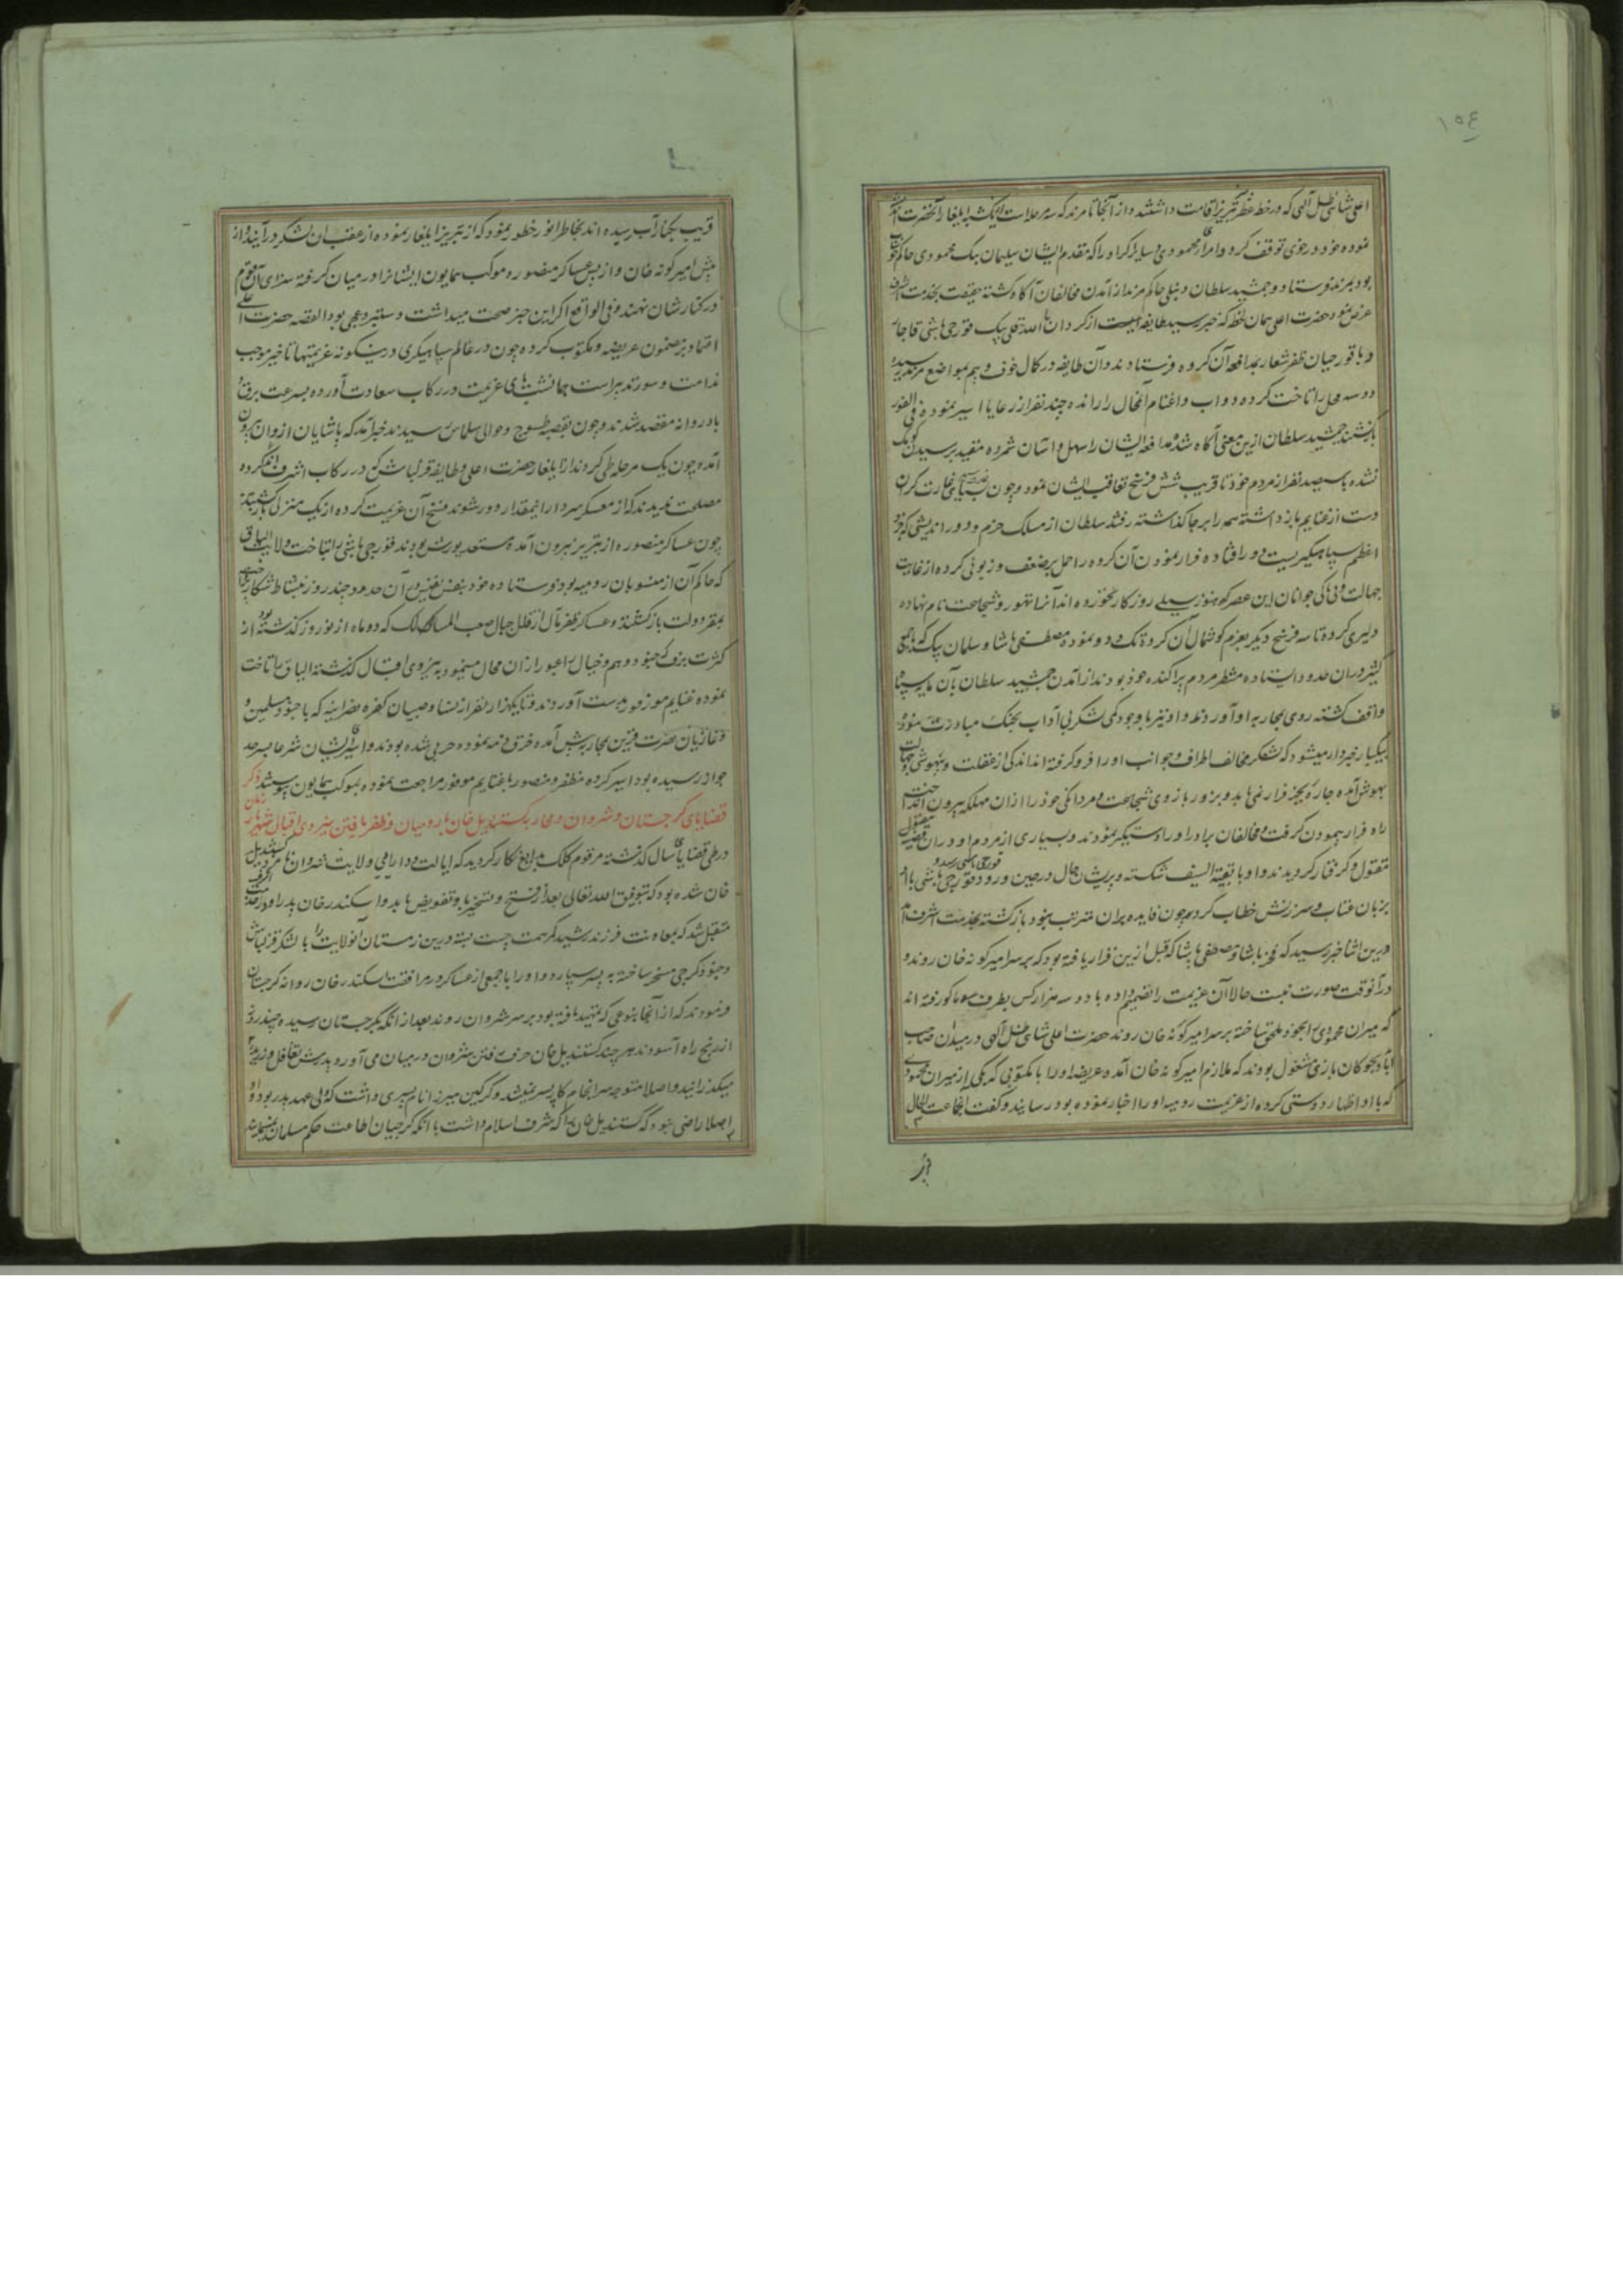 ١٥٤
اعلی شاهی ظل آلهی که در خطه تبریز اقامت داشتند و از آنجا تا مرند که سه مرحله است ایلغار آنحضرت
نموده خود در خوی توقف کرد و امراء محمودی و سایر اکراد را که مقدم ایشان سلیمان بیک محمودی حاکم خوشاب
بود بمرند فرستاد و جمشید سلطان دنبلی حاکم مرند از آمدن مخالفان آگاه گشته حقیقت بخدمت اشرف
عرض نمود حضرت اعلی همان لحظه که خبر رسید طایفه از کردان الله قلی بیک قورچی باشی قاجار
و با قورچیان ظفر شعار بمدافعه آن گروه فرستادند و آن طایفه در کمال خوف و بیم بمواضع مرند رسیده
دو سه محل را تاخت کرده دواب و اغنام آنمحال را رانده چند نفر از رعایا اسیر نموده فی الفور
بازگشتند جمشید سلطان ازین معنی آگاه شد و مدافعه ایشان را سهل و آسان شمرده مقید برسیدن کومک
نشده با سیصد نفر از مردم خود تا قریب شش فرسخ تعاقب ایشان نمود و چون سپاهی غارت گران
دست از غنایم باز داشته همه را بر جا گذاشته رفتند سلطان از مسلک حزم و دور اندیشی که جزو
اعظم سپاهیگریست دور افتاده فرار نمودن آن گروه را حمل بر ضعف و زبونی کرده از غایت
جهالت و بی باکی جوانان این عصر که هنوز سیلی روزگار نخورده اند آنرا تهور و شجاعت نام نهاده
دلیری کرده تا سه فرسخ دیگر بعزم گوشمال آن گروه تک و دو نموده مصطفی پاشا و سلمان بیک که با جمعی
کثیر در آن حدود ایستاده منتظر مردم پراکنده خود بودند از آمدن جمشید سلطان بآن مایه سپاه
واقف گشته روی بمحاربه او آوردند و او نیز با وجود کمی لشکر بی آداب بجنگ مبادرت نمود
بیکبار خبردار میشود که لشکر مخالف اطراف و جوانب او را فرو گرفته اند اندکی از غفلت و بیهوشی و جهالت
بهوش آمده چاره بجز فرار نمی یابد و بزور بازوی شجاعت و مردانگی خود را از آن مهلکه بیرون انداخت
راه فرار پیمودن گرفت و مخالفان برادر او را دستگیر نمودند و بسیاری از مردم او در آن قضیه مقتول
مقتول و گرفتار گردیدند و او با بقیة السیف شکسته و پریشان حال در حین ورود قورچی باشی با او
بزبان عتاب و سرزنش خطاب کرد چون فایده بر آن مترتب نبود بازگشته بخدمت اشرف آمد
درین اثنا خبر رسید که پاشا و مصطفی پاشا که قبل ازین قرار یافته بود که بر سر امیر گونه خان روند و
در آنوقت صورت نبست حالا آن عزیمت را تصمیم داده با دو سه هزار کس بطرف ماکو رفته اند
که میران محمودی را بخود ملحق ساخته بر سر امیر گونه خان روند حضرت اعلی شاهی ظل آلهی در میدان صاحب
اباد بچوکان بازی مشغول بودند که ملازم امیر گونه خان آمده عریضه او را با مکتوبی که یکی از میران محمودی
که با او اظهار دوستی کرده از عزیمت رومیه او را اخبار نموده بود رسانید و گفت آنجماعت الحال
قریب بکنار آب رسیده اند بخاطر انور خطور نمود که از تبریز ایلغار نموده از عقب آن لشکر درآیند و از
پیش امیر گونه خان و از پس عساکر منصوره موکب همایون ایشانرا در میان گرفته سزای آن قوم
در کنارشان نهند و فی الواقع اگر این خبر صحت میداشت دستبرد عجبی بود القصه حضرت اعلی
اعتماد بر مضمون عریضه و مکتوب کرده چون در عالم سپاهیگری درینگونه عزیمتها تاخیر موجب
ندامت و سوء تدبیر است همانشب پای عزیمت در رکاب سعادت آورده بسرعت برق و
باد روانه مقصد شدند و چون بقصبه طسوج و حوالی سلماس رسیدند خبر آمد که پاشایان از وان بیرون
آمده چون یک مرحله طی کردند از ایلغار حضرت اعلی و طایفه قزلباش که در رکاب اشرف
مصلحت ندیدند که از معسکر سردار اینمقدار دور شوند فسخ آن عزیمت کرده از یک منزلی بازگشتند
چون عساکر منصوره از تبریز بیرون آمده مستعد یورش بودند قورچی باشی را بتاخت ولایت الباق
که حاکم آن از منسوبان رومیه بود فرستاده خود بنفس نفیس در آن حدود چند روز بنشاط شکار
بمقر دولت بازگشتند و عساکر ظفر مآل از قلل جبال صعب المسالک که دو ماه از نوروز گذشته بود از
کثرت برف که جنود وهم و خیال را عبور از آن محال مینمود بنیروی اقبال گذشته الباق را تاخت
نموده غنایم موفور بدست آوردند و تا یکهزار نفر از نسا و صبیان کفره نصرانیه که با جنود مسلمین و
و غازیان نصرت قرین بمحاربه پیش آمده خرق ذمه نموده حربی شده بودند و اسر ایشان شرعا بسرحد
جواز رسیده بود اسیر کرده مظفر و منصور با غنایم موفور مراجعت نموده بموکب همایون پیوستند ذکر
قضایای گرجستان و شروان و محاربه کستندیل خان با رومیان و ظفر یافتن بنیروی اقبال شهریار زمان
در طی قضایای سال گذشته مرقوم کلک بدایع نگار گردید که ایالت و دارایی ولایت شروان نامزد کستندیل
خان شده بود که بتوفیق الله تعالی بعد از فتح و تسخیر باو تفویض یابد و اسکندر خان پدر او
متقبل شد که بمعاونت فرزند رشید کمر همت چست بسته درین زمستان آنولایت را با لشکر قزلباش
و جنود گرجی مسخر ساخته به پسر سپارد و او را با جمعی از عساکر در مرافقت اسکندر خان روانه گرجستان
فرمودند که از آنجا بنوعی که تمهید یافته بود بر سر شروان روند بعد از آنکه بگرجستان رسیده چند روز
از رنج راه آسودند هر چند کستندیل خان حرف رفتن شروان در میان می آورد پدرش بتغافل
میگذرانید و اصلا متوجه سرانجام کار پسر نمیشد و گرگین میرزا نام پسری داشت که ولی عهد پدر بود و او
اصلا راضی نبود که کستندیل خان که شرف اسلام داشت با آنکه گرجیان اطاعت حکم مسلمان نمینمایند